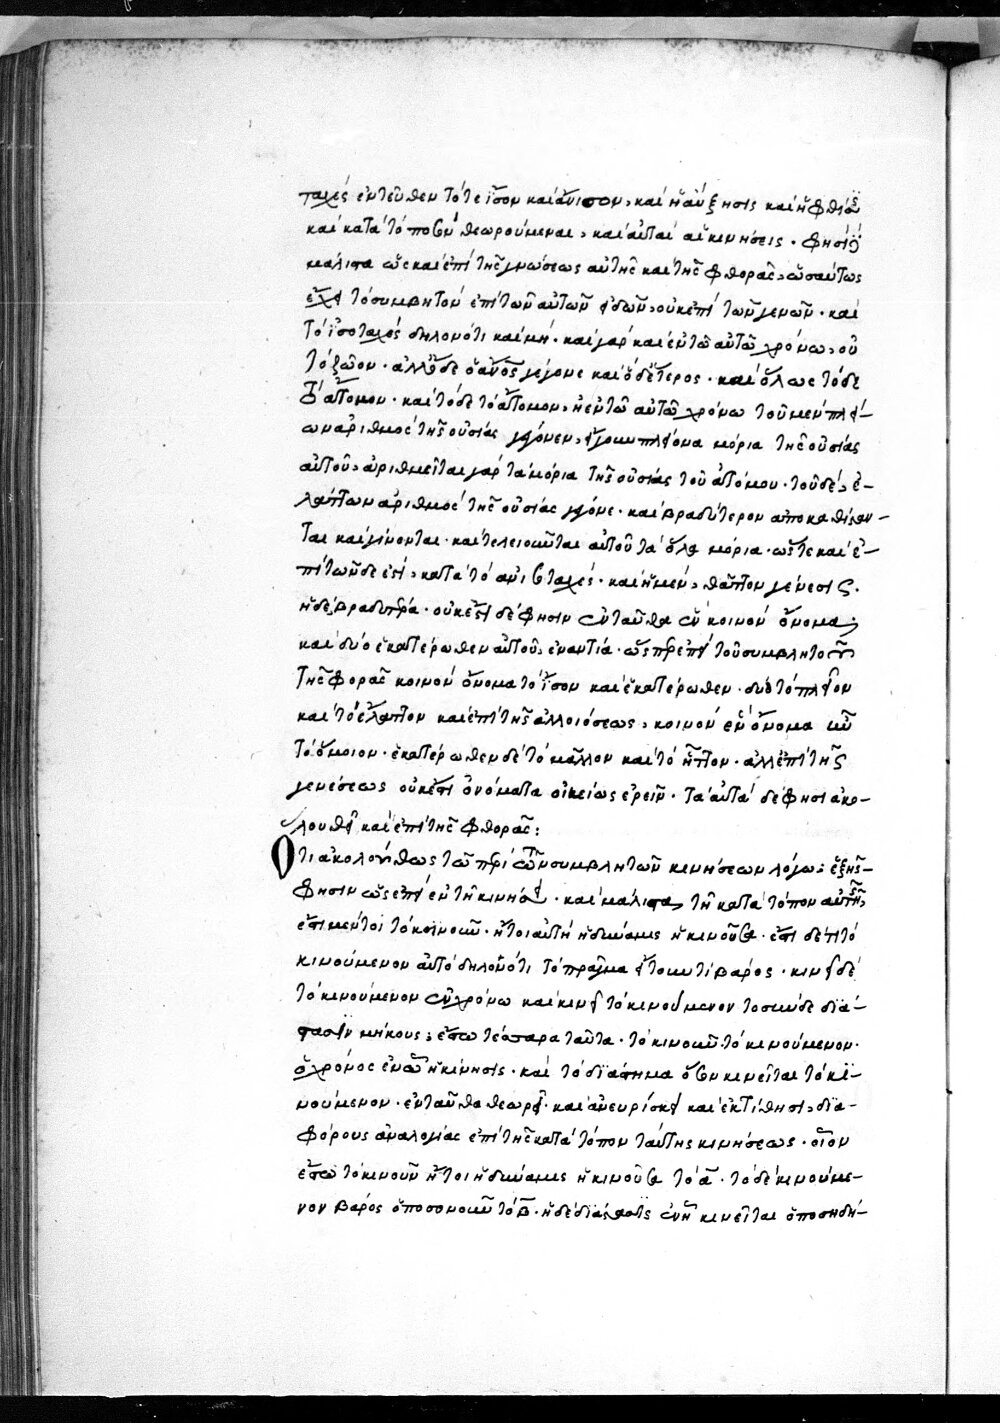 ταχές ἐντεῦθεν τό τε ἴσον καὶ ἄνισον, καὶ ἡ αὔξησις καὶ ἡ φθίσις
καὶ κατὰ τὸ ποσὸν θεωρούμεναι, καὶ αὗται αἱ κινήσεις. φησὶ
μάλιστα ὡς καὶ ἐπὶ τῆς γενέσεως αὐτῆς καὶ τῆς φθορᾶς, ὡσαύτως
ἔχει τὸ συμβλητὸν ἐπὶ τῶν αὐτῶν εἰδῶν, οὐκ ἐπὶ τῶν γενῶν. καὶ
τὸ ἰσοταχές δηλονότι καὶ μή. καὶ γὰρ καὶ ἐν τῶ αὐτῶ χρόνω, οὐ
τὸ ζῶον. ἀλλ' ὅδε ὁ ἄνος γέγονε καὶ ὁ δεύτερος. καὶ ὅλως τόδε
τὸ ἄτομον. καὶ τόδε τὸ ἄτομον, ἢ ἐν τῶ αὐτῶ χρόνω τοῦ μὲν πλεί-
ων ἀριθμὸς τῆς οὐσίας γέγονεν, ἤγουν πλείονα μόρια τῆς οὐσίας
αὐτοῦ, ἀριθμεῖται γὰρ τὰ μόρια τῆς οὐσίας τοῦ ἀτόμου. τοῦ δὲ, ἐ-
λάττων ἀριθμὸς τῆς οὐσίας γέγονε. καὶ βραδύτερον ἀποκαθίσταν-
ται καὶ γίνονται. καὶ τελειοῦνται αὐτοῦ τὰ ὅλα μόρια. ὥστε καὶ ἐ-
πὶ τῶνδε ἐστὶ, κατὰ τὸ ἀνισοταχές. καὶ ἡ μὲν, θᾶττον γένεσις.
ἡ δὲ, βραδυτέρα. οὐκ ἔστι δέ φησιν ἐνταῦθα ἓν κοινὸν ὄνομα,
καὶ δύο ἑκατέρωθεν αὐτοῦ, ἐναντία. ὥσπερ ἐπὶ τοῦ συμβλητοῦ
τῆς φορᾶς κοινὸν ὄνομα τὸ ἴσον καὶ ἑκατέρωθεν. δύο τὸ πλεῖον
καὶ τὸ ἔλαττον καὶ ἐπὶ τῆς ἀλλοιώσεως, κοινὸν ὄνομα
τὸ ὅμοιον. ἑκατέρωθεν δὲ τὸ μᾶλλον καὶ τὸ ἧττον. ἀλλ' ἐπὶ τῆς
γενέσεως οὐκ ἔστι ὀνόματα οἰκείως ἐρεῖν. τὰ αὐτὰ δέ φησι ἀκο-
λουθεῖ καὶ ἐπὶ τῆς φθορᾶς:
Ὅτι ἀκολούθως τῶ περὶ τῶν συμβλητῶν κινήσεων λόγω, ἑξῆς
φησιν ὡς ἐπεὶ ἐν τῆ κινήσει. καὶ μάλιστα, τῆ κατὰ τόπον αὐτῆς,
ἔστι μέντοι τὸ κοινοῦν. ἤτοι αὐτὴ ἡ δύναμις ἡ κινοῦσα. ἔστι δέ τι τὸ
κινούμενον αὐτὸ δηλονότι τὸ πρᾶγμα ἤτουν τὶ βάρος. κινεῖ δὲ
τὸ κινούμενον ἐν χρόνω καὶ κινεῖ τὸ κινούμενον τοσούνδε διά-
στασιν μήκους, ἔστω τέσσαρα ταῦτα. τὸ κινοῦν. τὸ κινούμενον.
ὁ χρόνος ἐν ὧ ἡ κίνησις. καὶ τὸ διάστημα ὅσον κινεῖται τὸ κι-
νούμενον. ἐνταῦθα θεωρεῖ. καὶ ἀνευρίσκει καὶ ἐκτίθησι, δια-
φόρους ἀναλογίας ἐπὶ τῆς κατὰ τόπον ταύτης κινήσεως. οἷον
ἔστω τὸ κινοῦν ἤτοι ἡ δύναμις ἡ κινοῦσα τὸ α. τὸ δὲ κινούμε-
νον βάρος ὁποσονοῦν τὸ β. ἡ δὲ διάστασις ἣν κινεῖται ὁποσηδή-